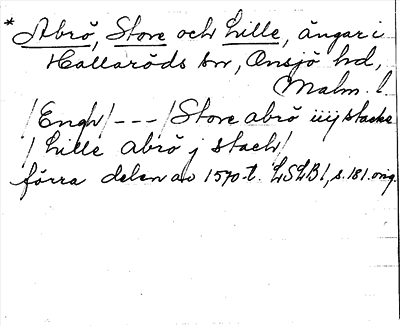 * Abrö, Store och Lille, ängar i
Hallaröds sn, Onsjö hd,
Malm. l.
/Engh/ --- /Store abrö iiij stacke
/ Lille abrö j stack/
förra delen av 1570-t. LSLB 1, s. 181. orig.